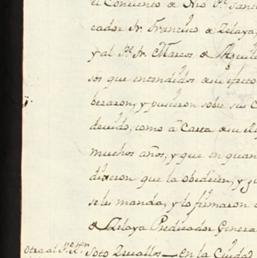 el Convento de Nro Pe. San
cador Fr. Francisco de Zelaya,
y al Pe. Fr. Marcos de Aguile
sos que entendidos de su efecto
beraron, y pusieron sobre sus C
decido, como à Carta de su
muchos años, y que en quan
dixeron que la obedecen, y
se les manda, y lo firmaron
de Zelaya Predicador Genera
Otra al Pe. Fr. Soto Zevallos — en la Ciudad